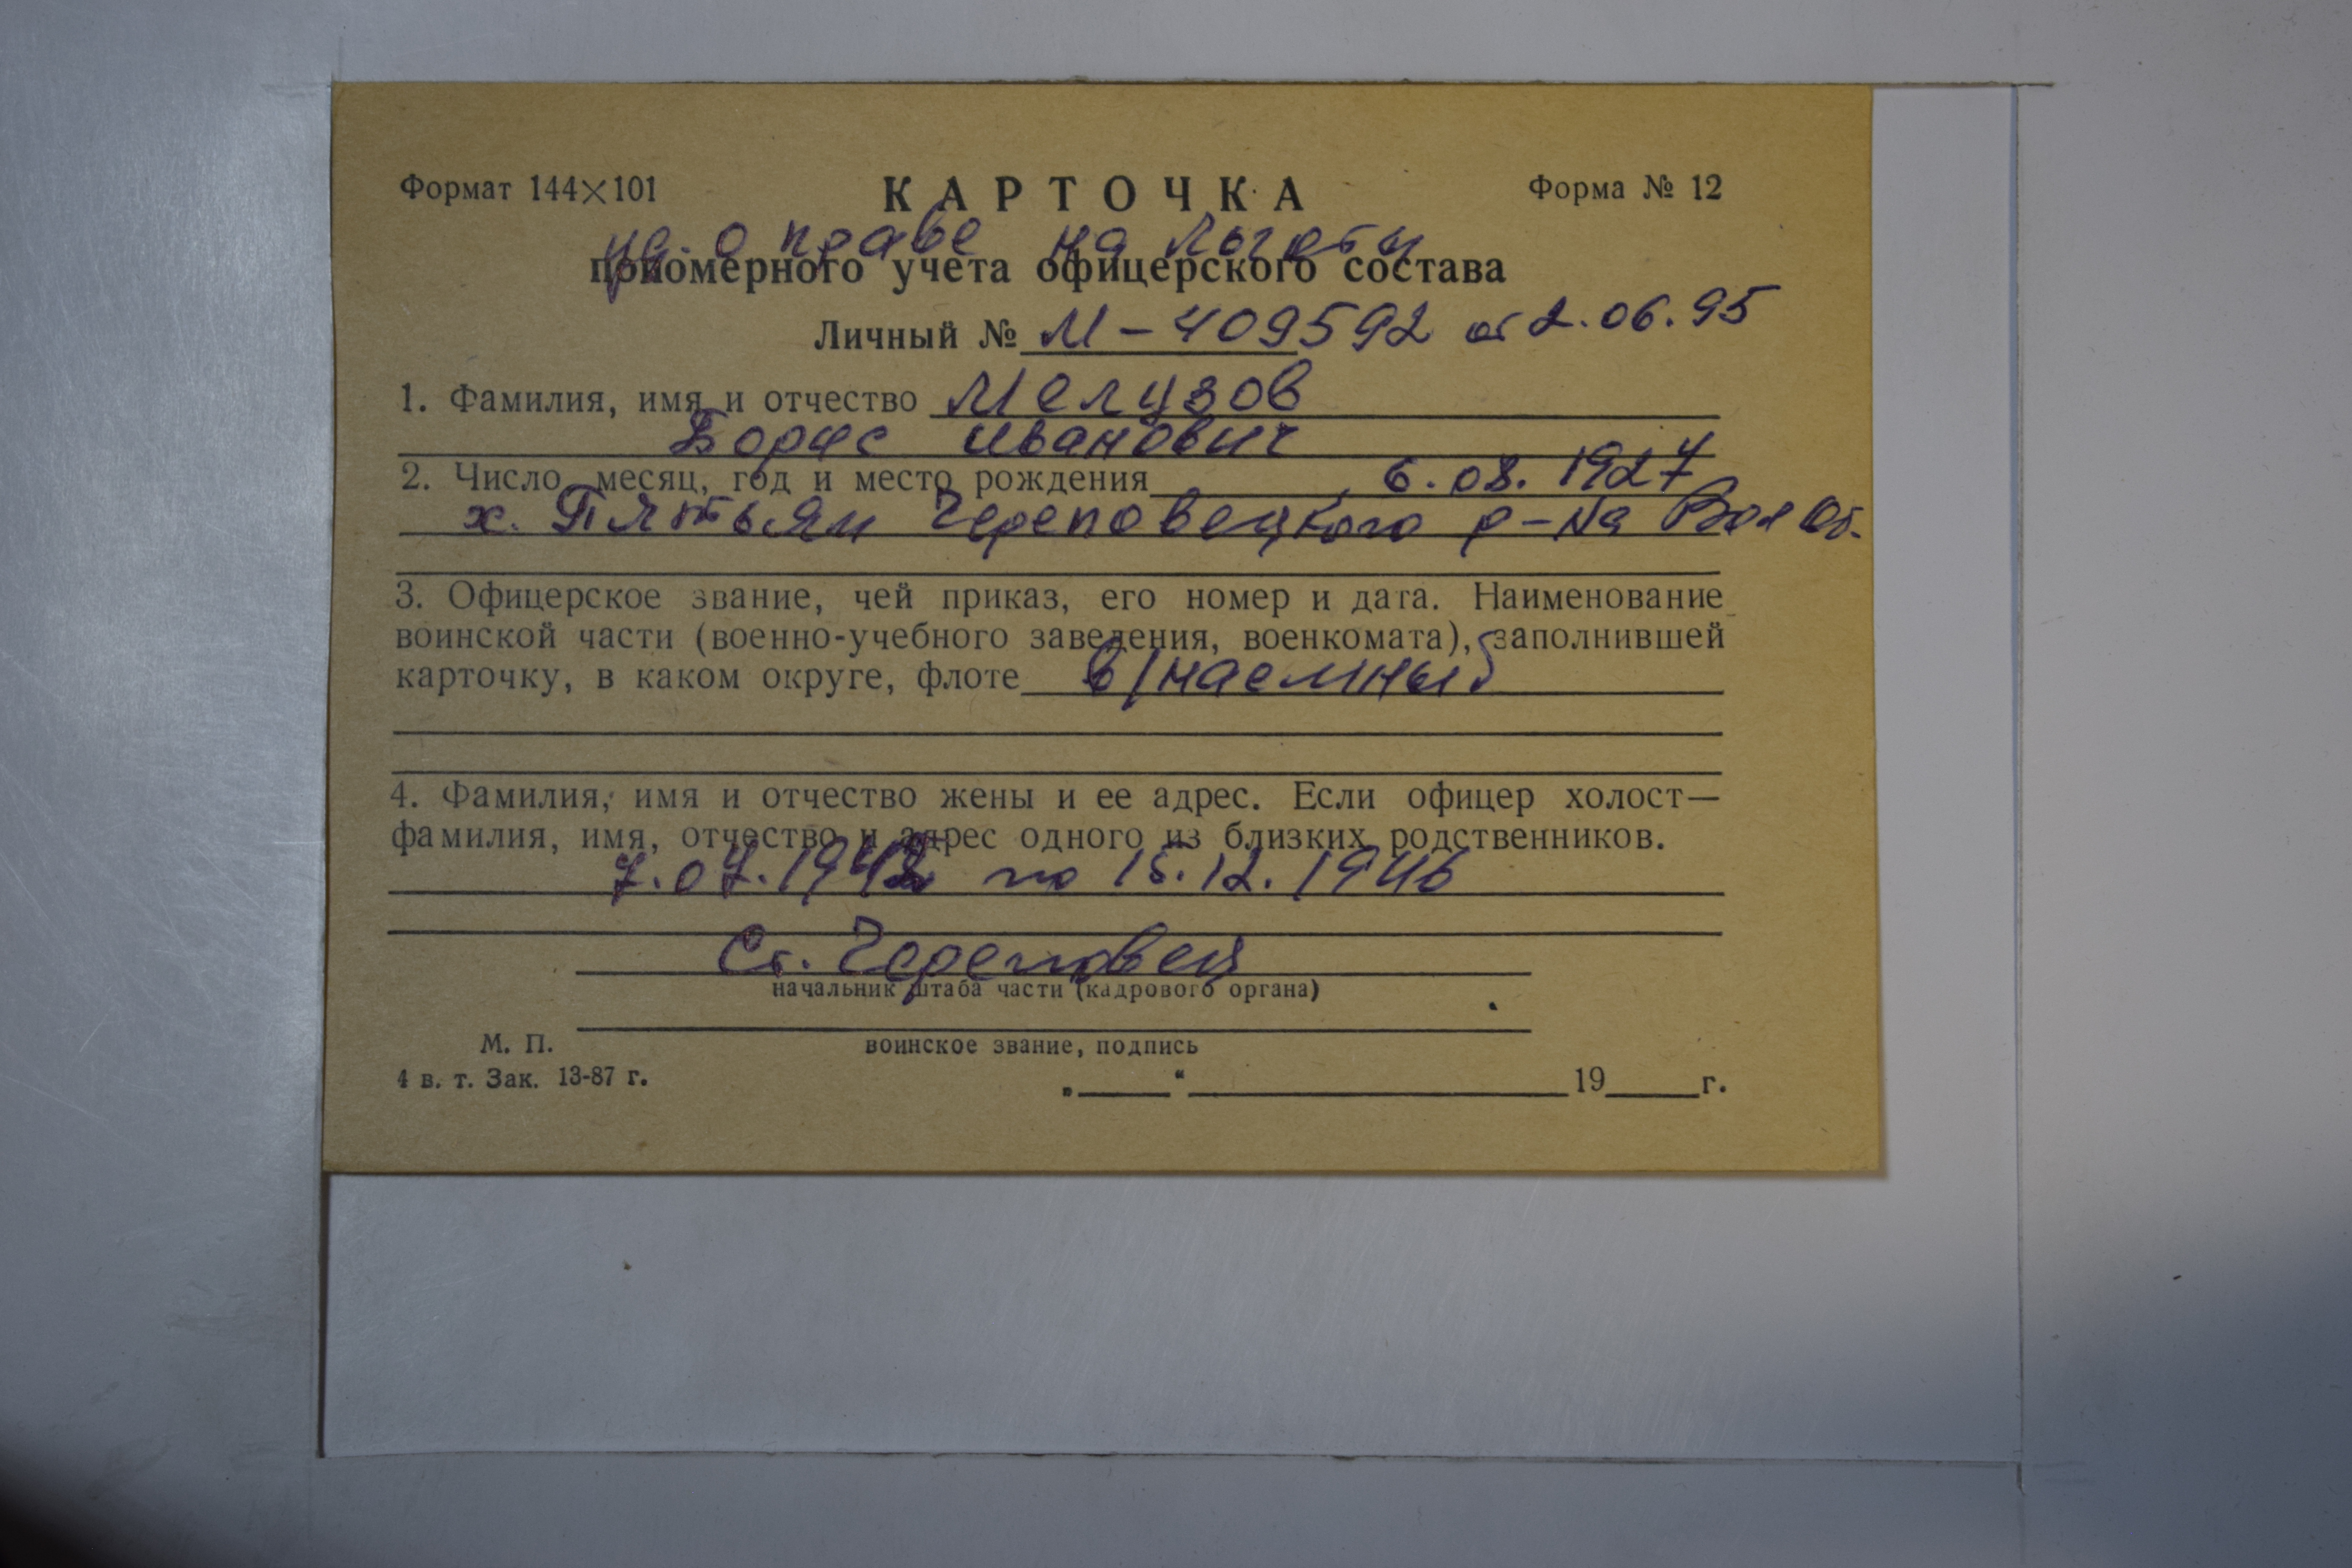 Формат 144×101
КАРТОЧКА
Форма № 12
уд. о праве на льготы
приомерного учета офицерского состава
Личный № М-409592 от 2.06.95
1. Фамилия, имя и отчество Мелузов
Борис Иванович
2. Число, месяц, год и место рождения 6.08.1927
х. Череповецкого р-на Вол Об.
3. Офицерское звание, чей приказ, его номер и дата. Наименование
воинской части (военно-учебного заведения, военкомата), заполнившей
карточку, в каком округе, флоте в/наемный
4. Фамилия, имя и отчество жены и ее адрес. Если офицер холост—
фамилия, имя, отчество и адрес одного из близких родственников.
7.07.1942 по 15.12.1946
Ст. Череповец
начальник штаба части (кадрового органа)
М. П.
воинское звание, подпись
4 в. т. Зак. 13-87 г.
„ “ 19 г.